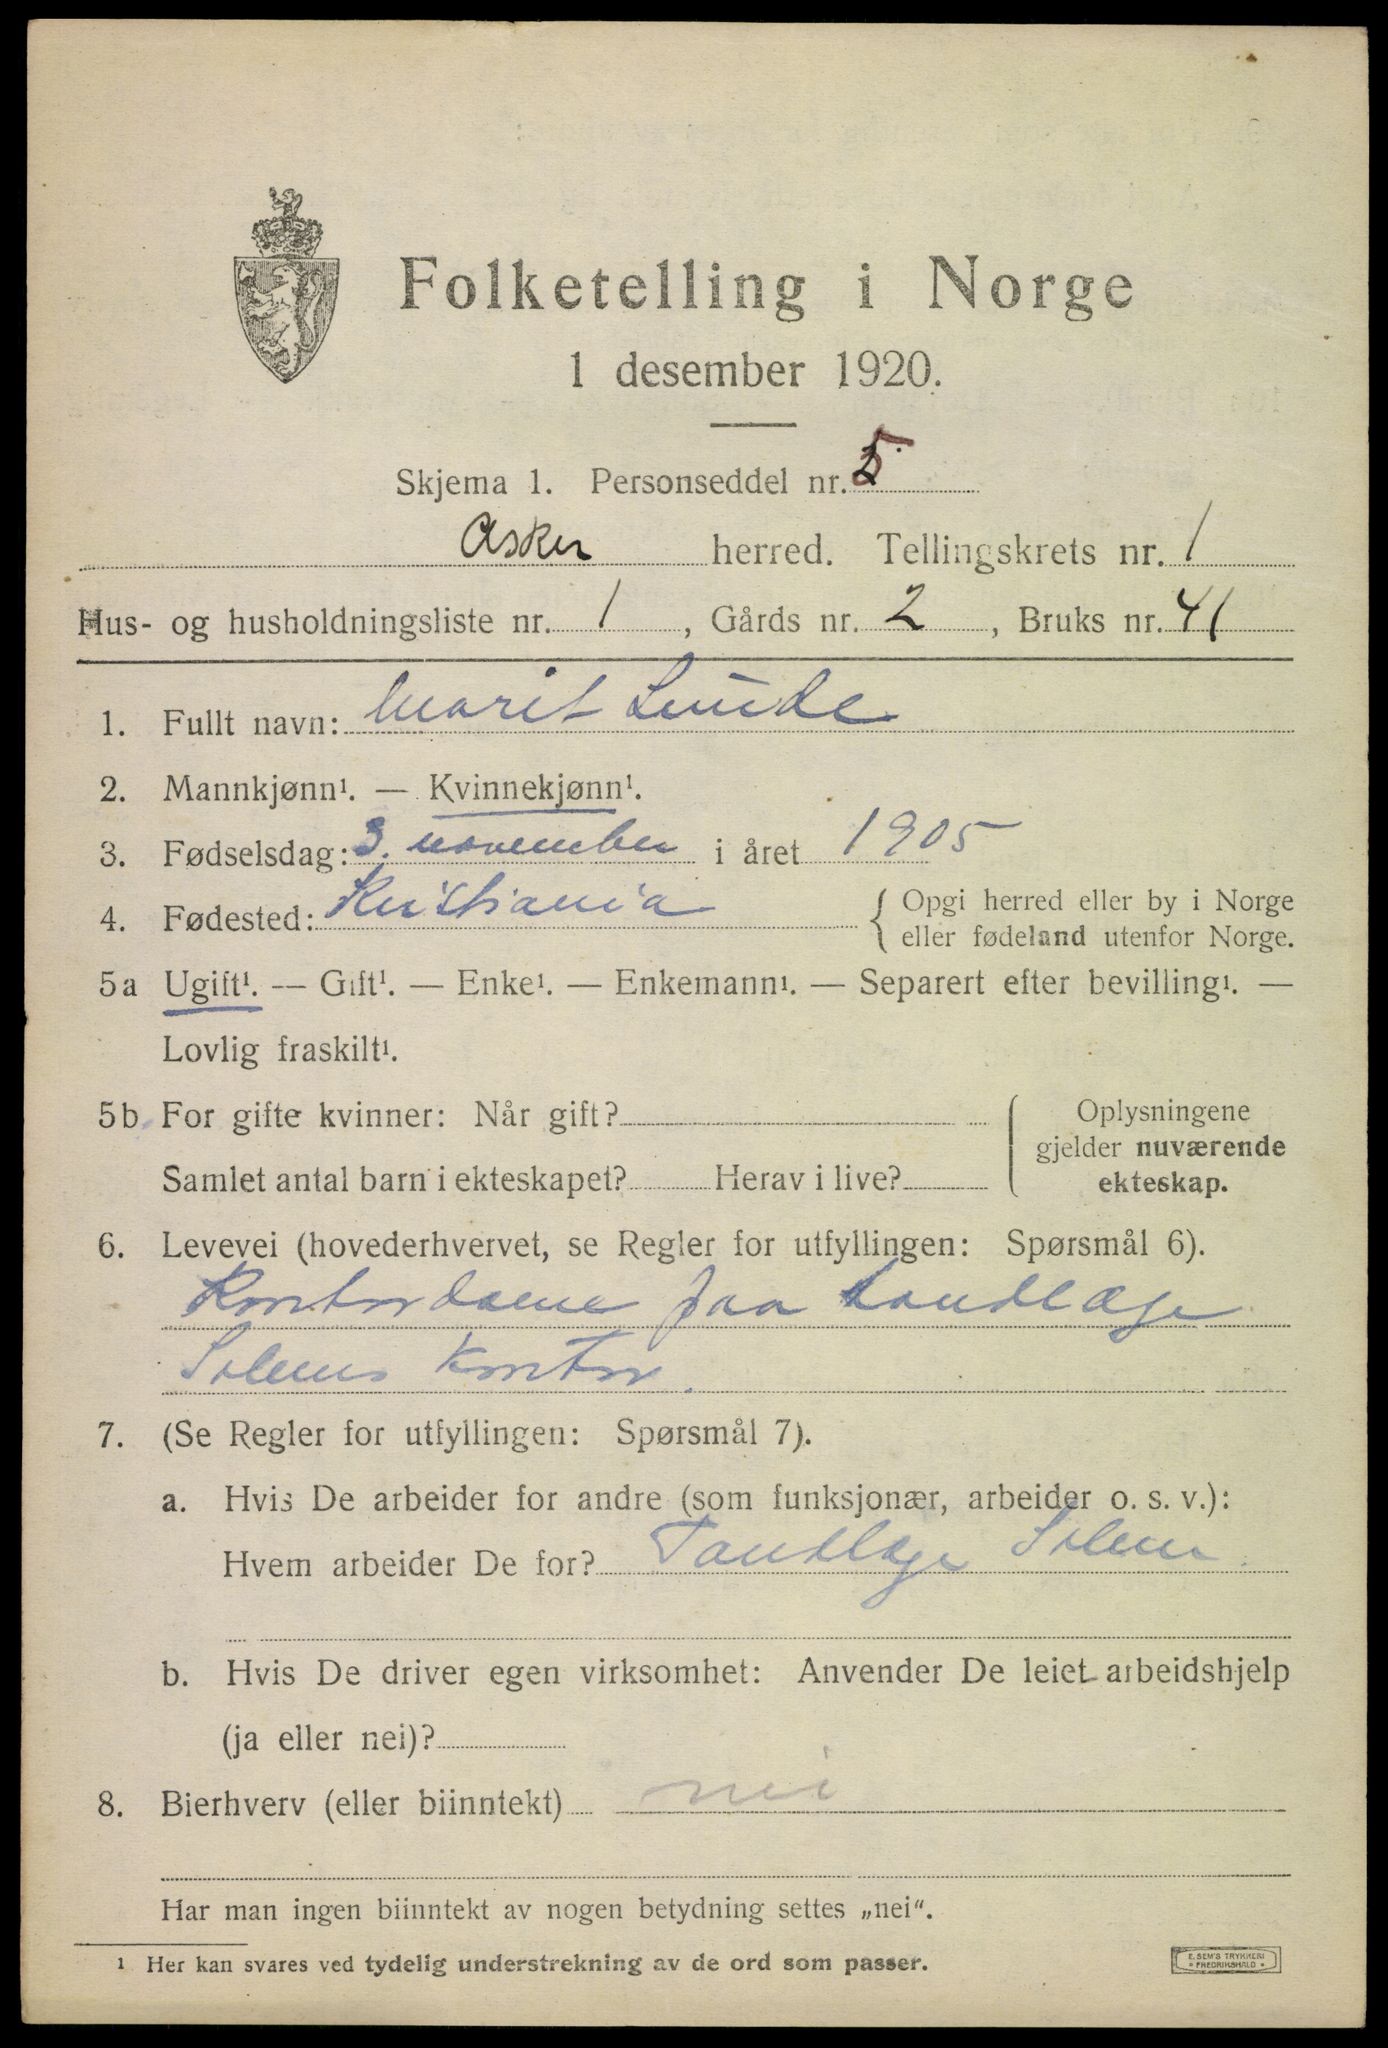 Folketelling i Norge
1 desember 1920.
Skjema 1. Personseddel nr. 5
Asker herred. Tellingskrets nr. 1
Hus- og husholdningsliste nr. 1, Gårds nr. 2, Bruks nr. 41
1. Fullt navn: Marit Lunde
2. Mannkjønn¹. — Kvinnekjønn¹.
3. Fødselsdag: 3. november i året 1905
4. Fødested: Kristiania { Opgi herred eller by i Norge
eller fødeland utenfor Norge.
5a Ugift¹. — Gift¹. — Enke¹. — Enkemann¹. — Separert efter bevilling¹. —
Lovlig fraskilt¹.
5b. For gifte kvinner: Når gift?
Samlet antal barn i ekteskapet? Herav i live?
Oplysningene
gjelder nuværende
ekteskap.
6. Levevei (hovederhvervet, se Regler for utfyllingen: Spørsmål 6).
Kontordame paa tandlæge
Solems kontor.
7. (Se Regler for utfyllingen: Spørsmål 7).
a. Hvis De arbeider for andre (som funksjonær, arbeider o. s. v.):
Hvem arbeider De for? Tandlæge Solem
b. Hvis De driver egen virksomhet: Anvender De leiet arbeidshjelp
(ja eller nei)?
8. Bierhverv (eller biinntekt) nei
Har man ingen biinntekt av nogen betydning settes „nei“.
¹ Her kan svares ved tydelig understrekning av de ord som passer.
E. SEM'S TRYKKERI
• FREDRIKSHALD •